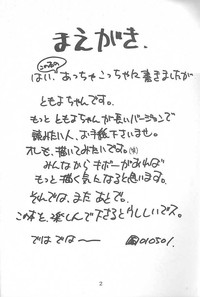 まえがき.
この本の
はい、あっちゃこっちゃに書きましたが
ともよちゃんです。
もっと ともよちゃんが長いバージョンで
読みたい人、お手紙下さいませ。
オレも、描いてみたいです。(笑)
みんなから キボーがあれば
もっと描く気になると思います。
そんでは、また あとで。
この本を、楽しんで下さるとうれしいでス。
ではでは〜 010501.
2